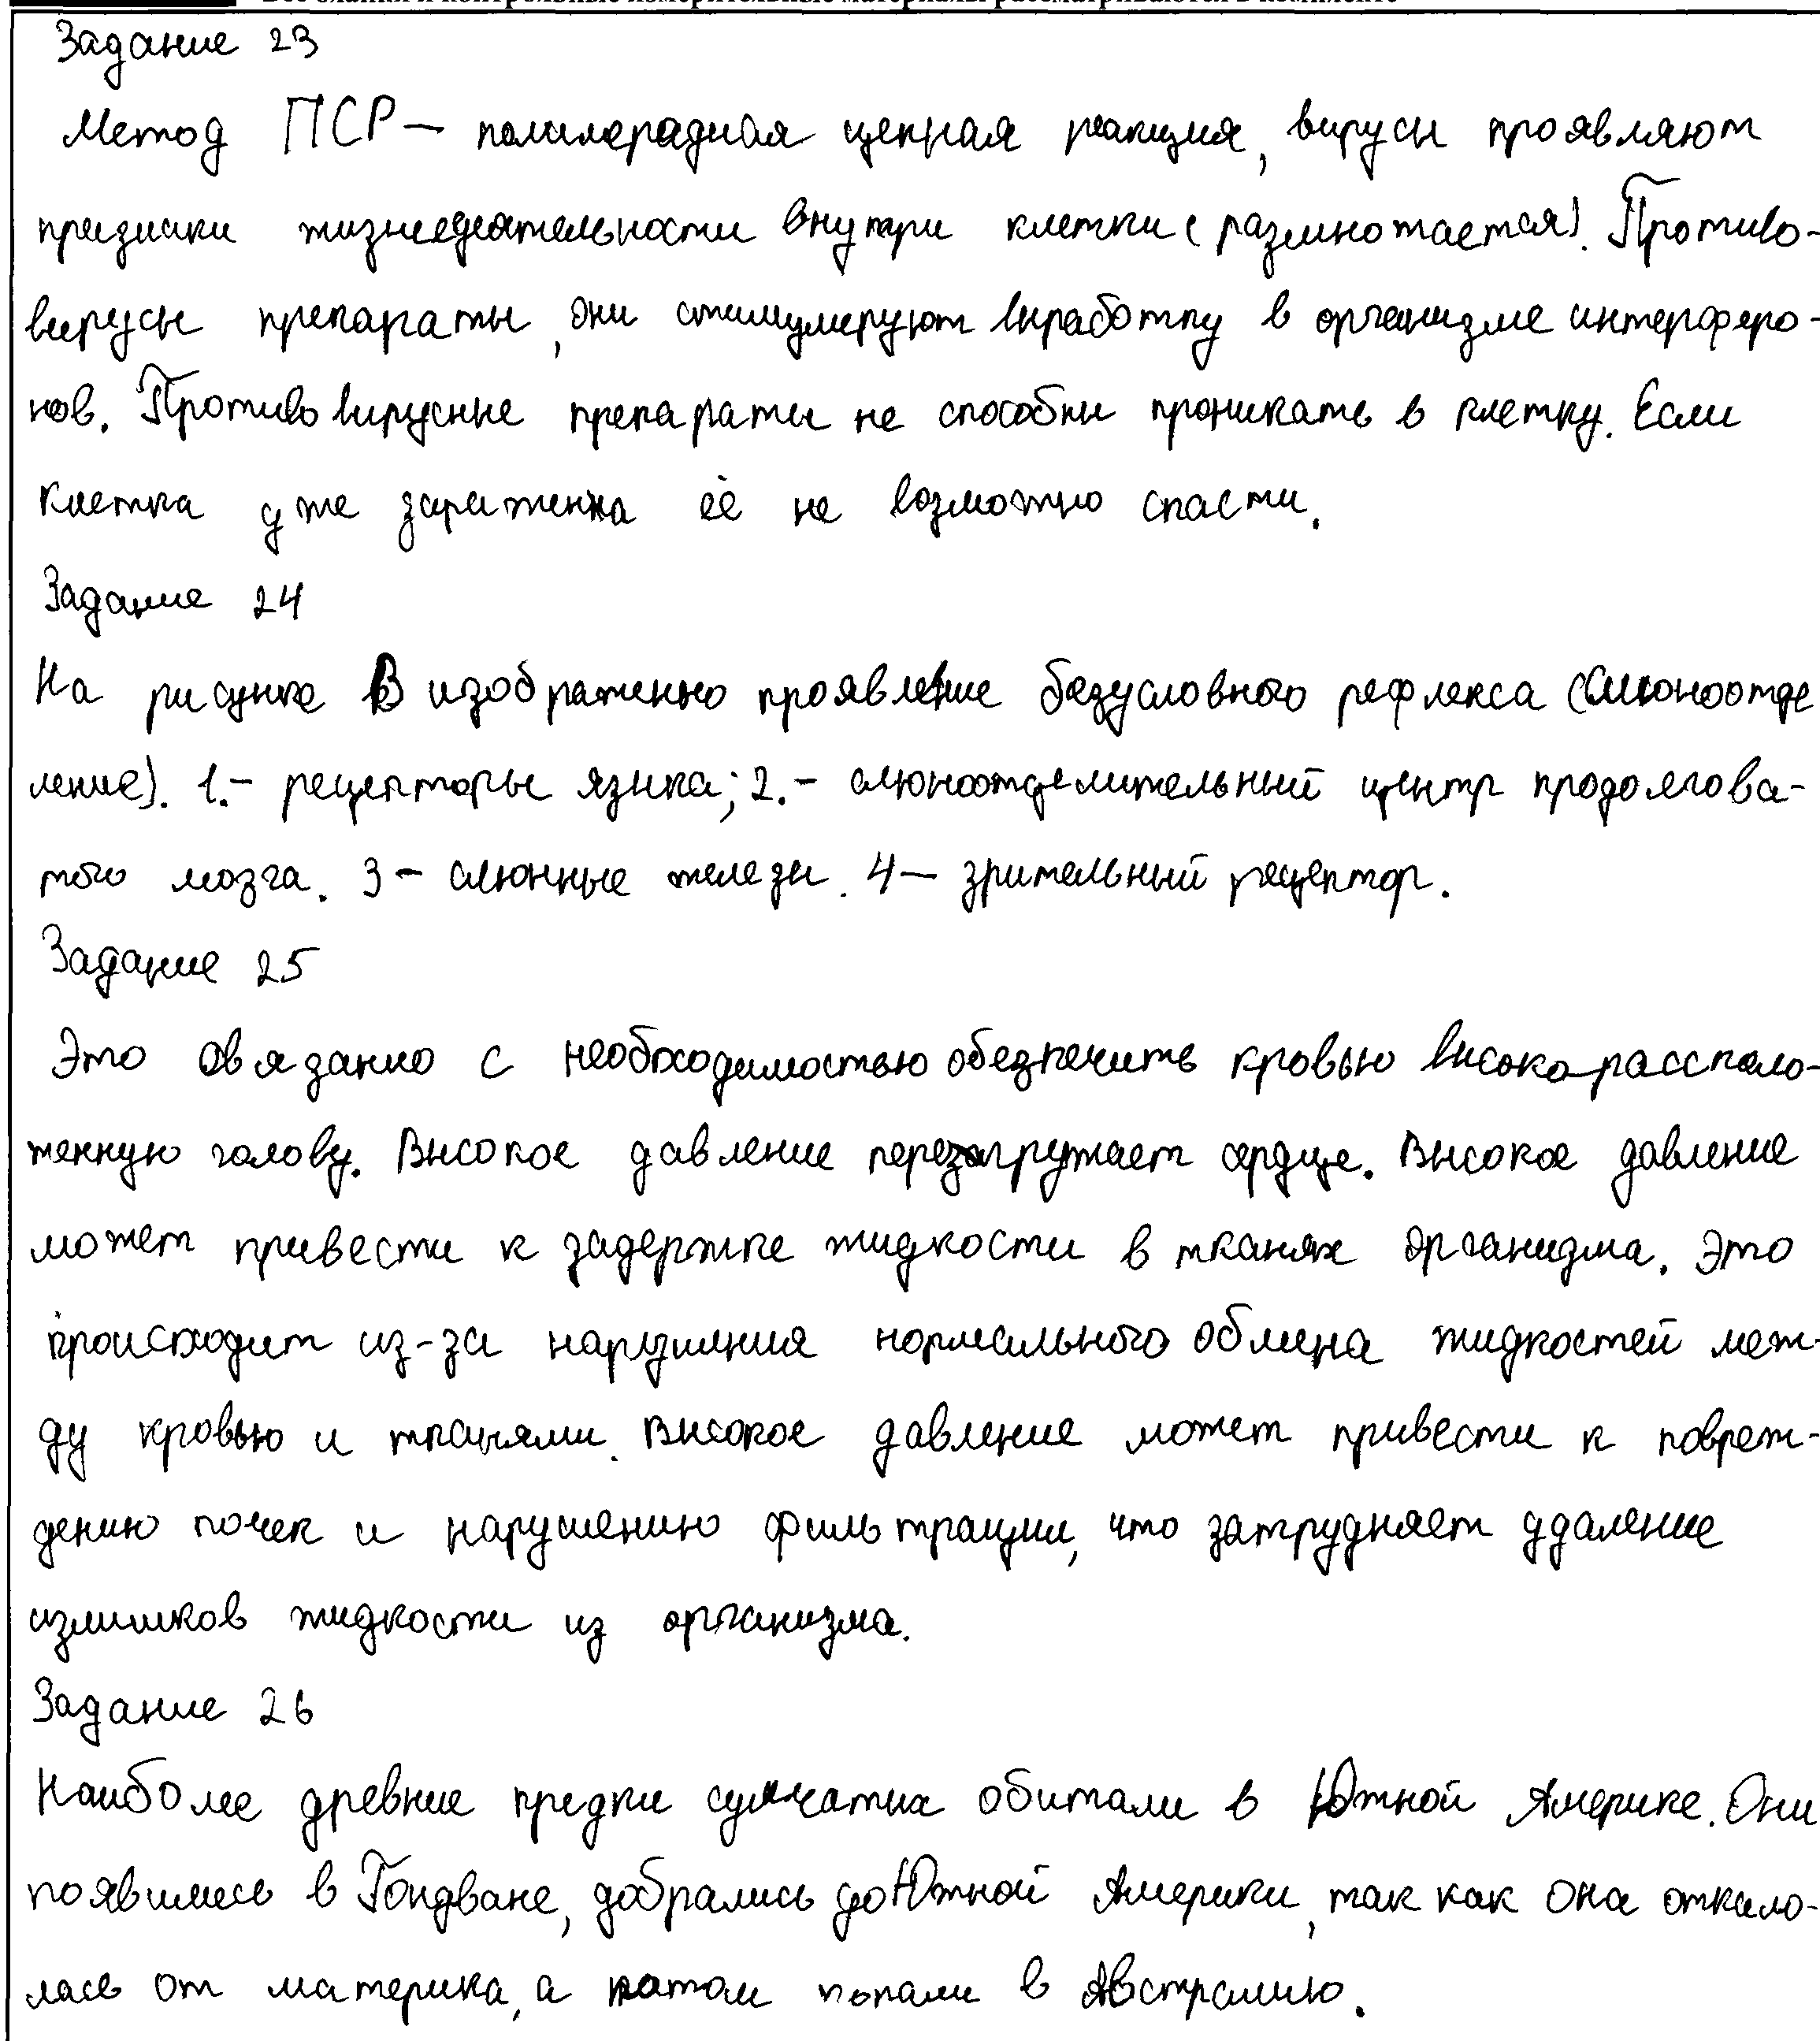 Все бланки и контрольные измерительные материалы рассматриваются в комплекте
Задание 23
Метод ПСР – полимерадная цепная реакция, вирусы проявляют
признаки жизнедеятельности внутри клетки (размножается). Противо-
вирусы препараты, они стимулируют выработку в организме интерферо-
нов. Противовирусные препараты не способны проникать в клетку. Если
клетка уже зараженна её не возможно спасти.
Задание 24
На рисунке В изображенно проявление безусловного рефлекса (слюноотде
ление). 1.– рецепторы языка; 2.– слюноотделительный центр продолгова-
того мозга. 3 – слюнные железы. 4 – зрительный рецептор.
Задание 25
Это связанно с необходимостью обезпечить кровью высокорассполо-
женную голову. Высокое давление перезагружает сердце. Высокое давление
может привести к задержке жидкости в тканях организма. Это
происходит из-за нарушения нормального обмена жидкостей меж-
ду кровью и тканями. Высокое давление может привести к повреж-
дению почек и нарушению фильтрации, что затрудняет удаление
излишков жидкости из организма.
Задание 26
Наиболее древние предки сумчатых обитали в Южной Америке. Они
появились в Гондване, добрались до Южной Америки, так как она откало-
лась от материка, а потом попали в Австралию.